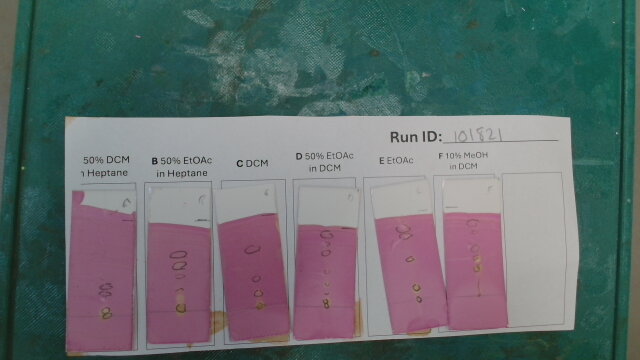 Run ID: 101821
50% DCM
in Heptane
B 50% EtOAc
in Heptane
C DCM
D 50% EtOAc
in DCM
E EtOAc
F 10% MeOH
in DCM